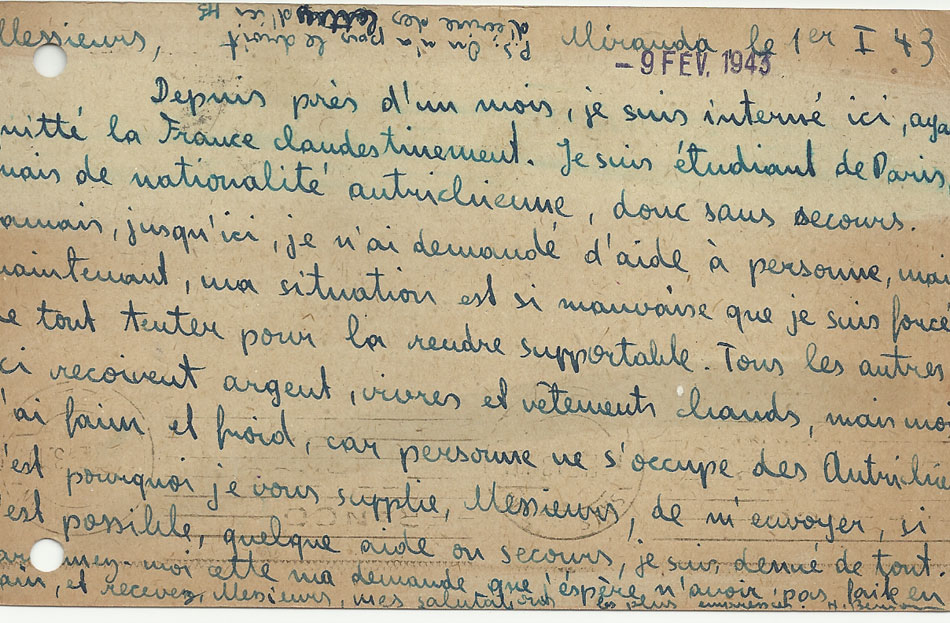 Messieurs,
P.S. On n'a pas le droit
d'écrire des
lettres d'ici HB
Miranda, le 1er I 43
- 9 FEV. 1943
Depuis près d'un mois, je suis interné ici, aya
uitté la France clandestinement. Je suis étudiant de Paris,
mais de nationalité autrichienne, donc sans secours.
amais, jusqu'ici, je n'ai demandé d'aide à personne, mai
maintenant, ma situation est si mauvaise que je suis forcé
e tout tenter pour la rendre supportable. Tous les autres
ci recoivent argent, vivres et vêtements chauds, mais moi
'ai faim et froid, car personne ne s'occupe des Autrichie
'est pourquoi je vous supplie, Messieurs, de m'envoyer, si
'est possible, quelque aide ou secours, je suis denué de tout.
moi cette ma demande que j'éspère n'avoir pas faite en
ain, et recevez, Messieurs, mes salutations les plus empressées. H.